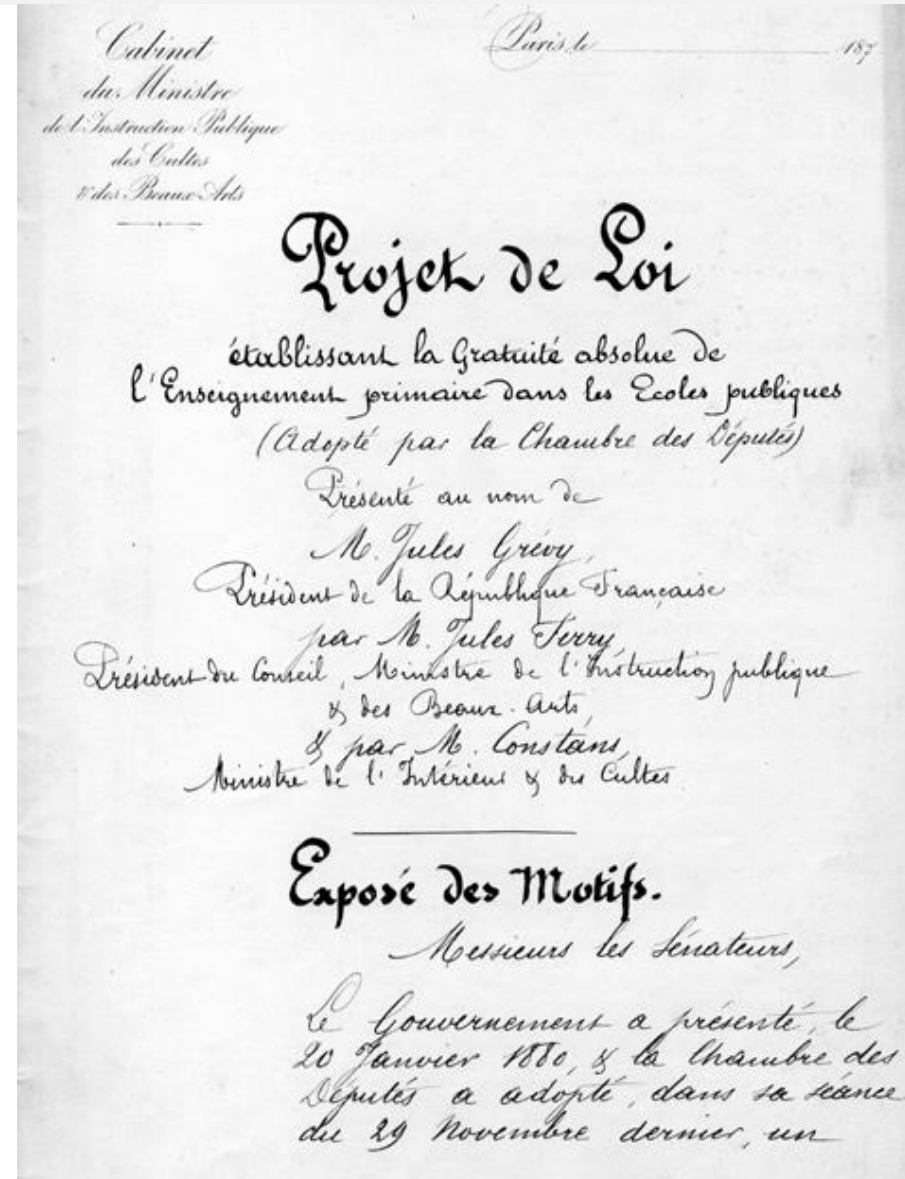 Cabinet
du Ministre
de l'Instruction Publique
des Cultes
& des Beaux-Arts
Paris, le 187
Projet de Loi
établissant la Gratuité absolue de
l'Enseignement primaire dans les Ecoles publiques
(Adopté par la Chambre des Députés)
Présenté au nom de
M. Jules Grévy,
Président de la République Française
par M. Jules Ferry,
Président du Conseil, Ministre de l'Instruction publique
& des Beaux-Arts,
& par M. Constans,
Ministre de l'Intérieur & des Cultes.
Exposé des Motifs.
Messieurs les Sénateurs,
Le Gouvernement a présenté, le
20 Janvier 1880, & la Chambre des
Députés a adopté, dans sa séance
du 29 Novembre dernier, un